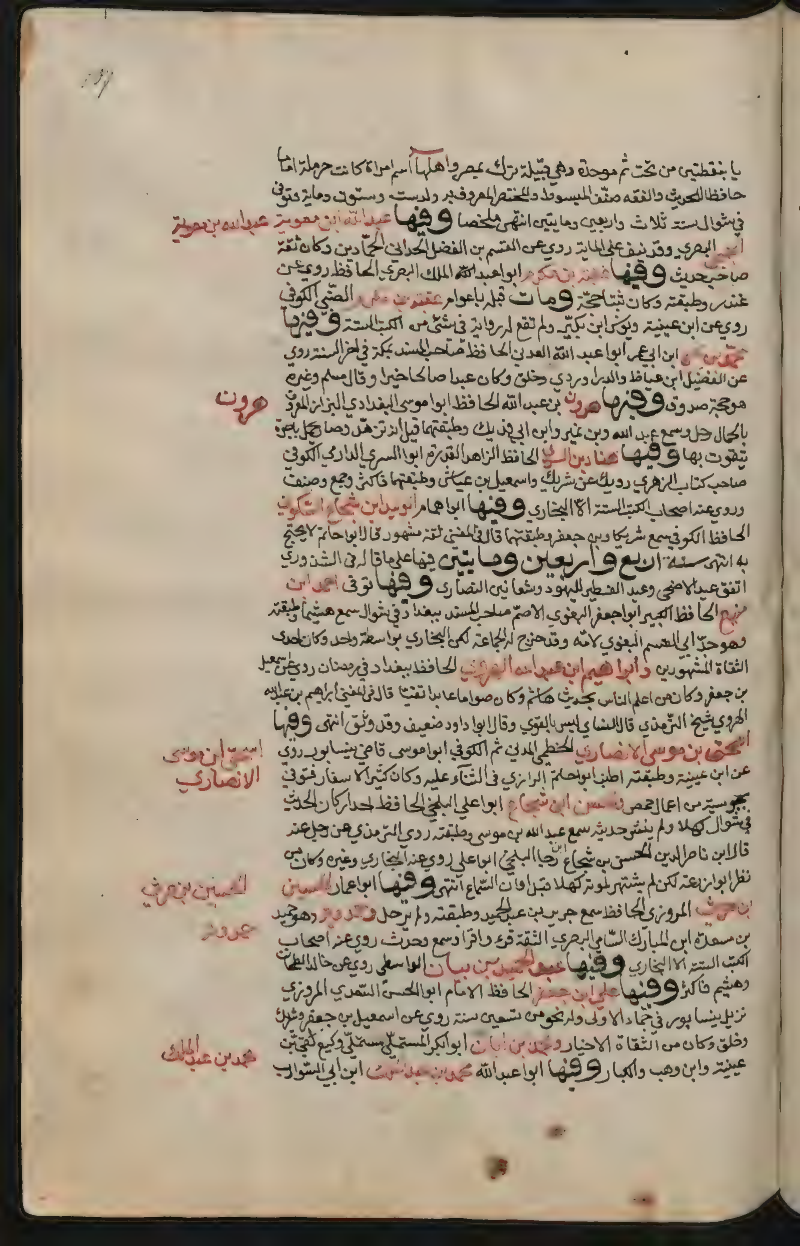 يا بنقطتين من تحت ثم موحدة وهي قبيلة نزلت بمصر واهلها اسم امراة كانت حرملة اماما
حافظا للحديث والفقه صنف المبسوط والمختصر المعروف به ولد ست وستون وماية وتوفي
في شوال سنة ثلاث واربعين ومايتين انتهى ملخصا وفيها عبد الله ابن معوية
عبد الله بن معوية
الجمحي البصري وقد نيف على الماية روي عن القسم بن الفضل الحداني الحمادين وكان ثقة
صاحب حديث وفيها عقبة بن مكرم ابوا عبد الملك البصري الحافظ روي عن
غندر وطبقته وكان ثبتا حجة ومات قبله باعوام عقبة بن مكرم الضبي الكوفي
روي عن ابن عيينة ويونس ابن بكير ولم تقع له رواية في شئ من الكتب الستة وفيها
محمد بن يحيى ابن ابي عمر ابوا عبد الله العدني الحافظ صاحب المسند بمكة في اخر السنة روي
عن الفضيل ابن عياظ والدراوردي وخلق وكان عبدا صالحا خيرا وقال مسلم وغيره
هو حجة صدوق وفيها هرون بن عبد الله الحافظ ابوا موسى البغدادي البزاز المعروف
هرون
بالحمال رحل وسمع عبد الله وبن نمير وابن ابي فديك وطبقتهما قيل انه تزهد وصار يحمل باجرة
يتقوت بها وفيها هناد بن السري الحافظ الزاهد القدوة ابوا السري الدارمي الكوفي
صاحب كتاب الزهري رويك عن شريك واسمعيل بن عياش وطبقتهما فاكثر وجمع وصنف
وروي عنه اصحاب الكتب الستة الا البخاري وفيها ابوا همام الوليد ابن شجاع السكوني
الحافظ الكوفي سمع شريكا وبن جعفر وطبقتهما قال في المغني ثقة مشهور قال ابوا حاتم لا يحتج
به انتهى سنة اربع واربعين ومايتين فيها على ما قاله في الشذوري
اتفق عيد الاضحى وعيد الفطير لليهود وشعانين النصارى وفيها توفي احمد ابن
منيع الحافظ الكبير ابوا جعفر البغوي الاصم صاحب المسند ببغداد في شوال سمع هشيما وطبقته
وهو جد ابي القسم البغوي لامه وقد خرج له الجماعة لكن البخاري بواسطة واحد وكان احد
الثقاة المشهورين وابراهيم ابن عبد الله الهروي الحافظ ببغداد في رمضان روي عن اسمعيل
بن جعفر وكان من اعلم الناس بحديث هشيم وكان صواما عابدا تقيا قال في المغني ابراهيم بن عبد الله
الهروي شيخ الترمذي قال النساي ليس بالقوي وقال ابوا داود ضعيف وقد وثق انتهى وفيها
اسحق بن موسى الانصاري الخطمي المدني ثم الكوفي ابوا موسى قاضي نيسابور روي
اسحق ابن موسى
الانصاري
عن ابن عيينة وطبقته اطنب ابوا حاتم الرازي في الثناء عليه وكان كثير الاسفار فتوفي
بجوسية من اعمال حمص وحسن ابن شجاع ابوا علي البلخي الحافظ احد اركان الحديث
في شوال كهلا ولم ينتشر حديثه سمع عبد الله بن موسى وطبقته روي الترمذي عن رجل عنه
قال ابن ناصر الدين الحسن بن شجاع ابن رجا البلخي ابوا علي روي عنه البخاري وغيره وكان من
نظرا ابوا زرعة لكن لم يشتهر لموته كهلا قبل اوان السماع انتهى وفيها ابوا عمار الحسين
الحسين بن حريث
بن حريث المروزي الحافظ سمع جرير بن عبد الحميد وطبقته ولم يرحل وحمدويه وهو حميد
حمدويه
بن مسعدة ابن المبارك السامي البصري الثقة قرء واقرا وسمع وحدث روي عنه اصحاب
الكتب الستة الا البخاري وفيها عبد الحميد بن بيان الواسطي روي عن خالد الطحان
وهشيم فاكثر وفيها علي ابن جعفر الحافظ الامام ابوا الحسن السعدي المروزي
نزيل نيسابور في جماد الاولى وله نحو من تسعين سنة روي عن اسمعيل بن جعفر وشريك
وخلق وكان من الثقاة الاخيار ومحمد بن ابان ابوا بكر المستملي مستملي وكيع لقي بن
عيينة وابن وهب والكبار وفيها ابوا عبد الله محمد بن عبد الملك ابن ابي الشوارب
محمد بن عبد الملك